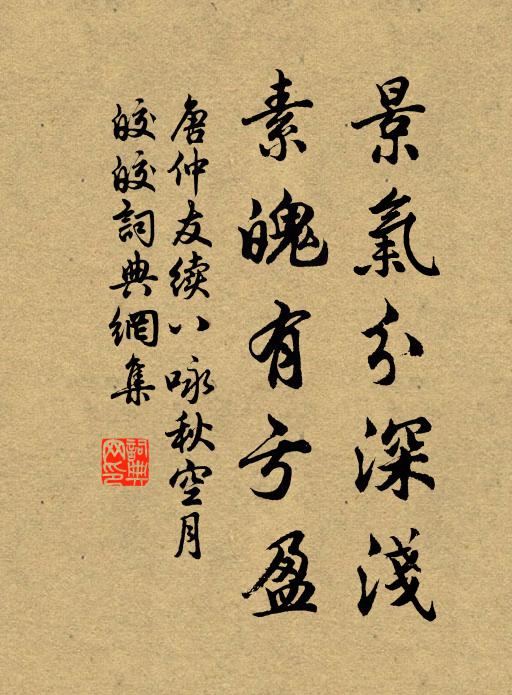 景氣分深淺
素魄有亏盈
唐仲友續八咏秋空月
皎皎詞典網集
詞典
网印